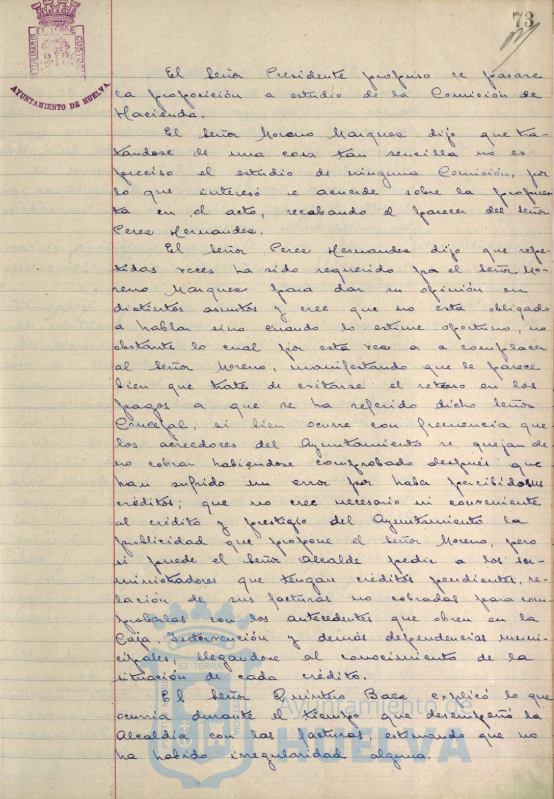 73
AYUNTAMIENTO DE HUELVA
El Señor Presidente propuso se pasara
la proposición a estudio de la Comisión de
Hacienda.
El Señor Moreno Marquez dijo que tra-
tandose de una cosa tan sencilla no es
preciso el estudio de ninguna Comisión, por
lo que interesó se acuerde sobre la propues-
ta en el acto, recabando el parecer del señor
Perez Hernandez.
El Señor Perez Hernandez dijo que repe-
tidas veces ha sido requerido por el Señor Mo-
reno Marquez para dar su opinión en
distintos asuntos y cree que no está obligado
a hablar sino cuando lo estime oportuno, no
obstante lo cual por esta vez va a complacer
al Señor Moreno, manifestando que le parece
bien que trate de evitarse el retraso en los
pagos a que se ha referido dicho Señor
Concejal, si bien ocurre con frecuencia que
los acreedores del Ayuntamiento se quejan de
no cobrar habiendose comprobado después que
han sufrido un error por haber percibido sus
créditos; que no cree necesario ni conveniente
al crédito y prestigio del Ayuntamiento la
publicidad que propone el Señor Moreno, pero
si puede el Señor Alcalde pedir a los su-
ministradores que tengan créditos pendientes, re-
lación de sus facturas no cobradas para com-
probarlas con los antecedentes que obren en la
Caja, Intervención y demás dependencias muni-
cipales, llegandose al conocimiento de la
situación de cada crédito.
El Señor Quintero Baez explicó lo que
ocurria durante el tiempo que desempeñó la
Alcaldía con las facturas, estimando que no
ha habido irregularidad alguna.
Ayuntamiento de
HUELVA